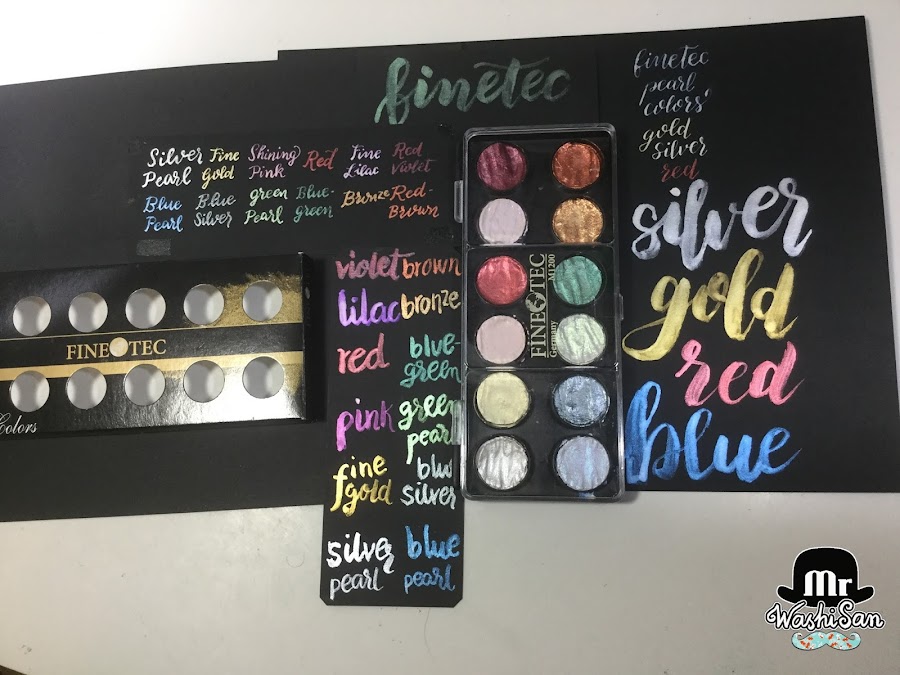 finetec
finetec
pearl
colors'
gold
silver
red
silver
gold
red
blue
Silver Pearl
Fine Gold
Shining Pink
Red
Fine Lilac
Red Violet
Blue Pearl
Blue Silver
green Pearl
Blue-green
Bronze
Red-Brown
violet brown
lilac bronze
red
blue-
green
pink
green
pearl
fine
gold
blu
silver
silver
pearl
blue
pearl
FINETEC
Colors
FINETEC
M1200
Germany
Mr
WashiSan